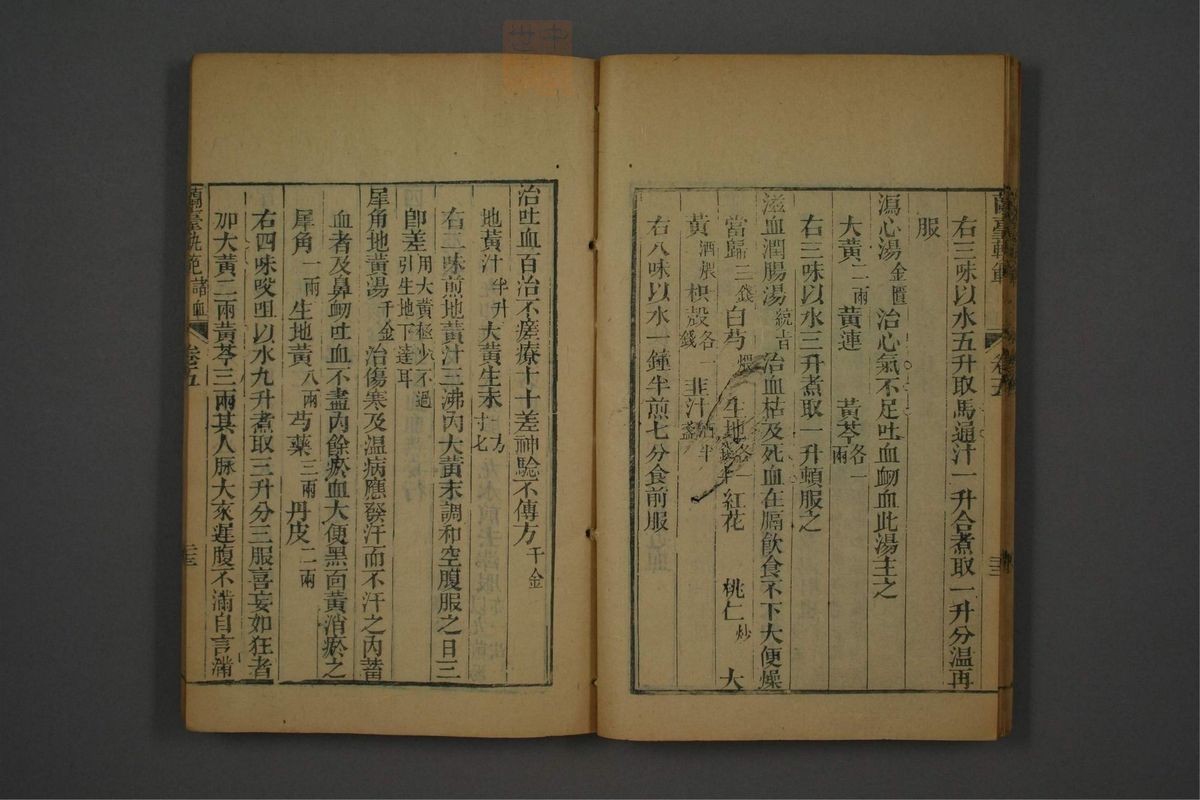 右三味以水五升取馬通汁一升合煮取一升分温再
服
瀉心湯金匱 治心氣不足吐血衂血此湯主之
大黄二兩 黄連 黄芩各一兩
右三味以水三升煮取一升頓服之
滋血潤腸湯統旨 治血枯及死血在膈飲食不下大便燥
當歸三錢 白芍煨 生地各一錢半 紅花 桃仁炒 大
黄酒煨 枳殼各一錢 韭汁酒半盞
右八味以水一鐘半煎七分食前服
卷五
治吐血百治不瘥療十十差神驗不傳方千金
地黄汁半升 大黄生末方寸七
右二味煎地黄汁三沸内大黄末調和空腹服之日三
卽差用大黄極少不過引生地下達耳
犀角地黄湯千金 治傷寒及温病應發汗而不汗之内蓄
血者及鼻衂吐血不盡内餘瘀血大便黑面黄消瘀之
犀角一兩 生地黄八兩 芍藥三兩 丹皮二兩
右四味㕮咀以水九升煮取三升分三服喜妄如狂者
加大黄二兩黄芩三兩其人脉大來遲腹不滿自言滿
蘭臺軌範 諸血 卷五